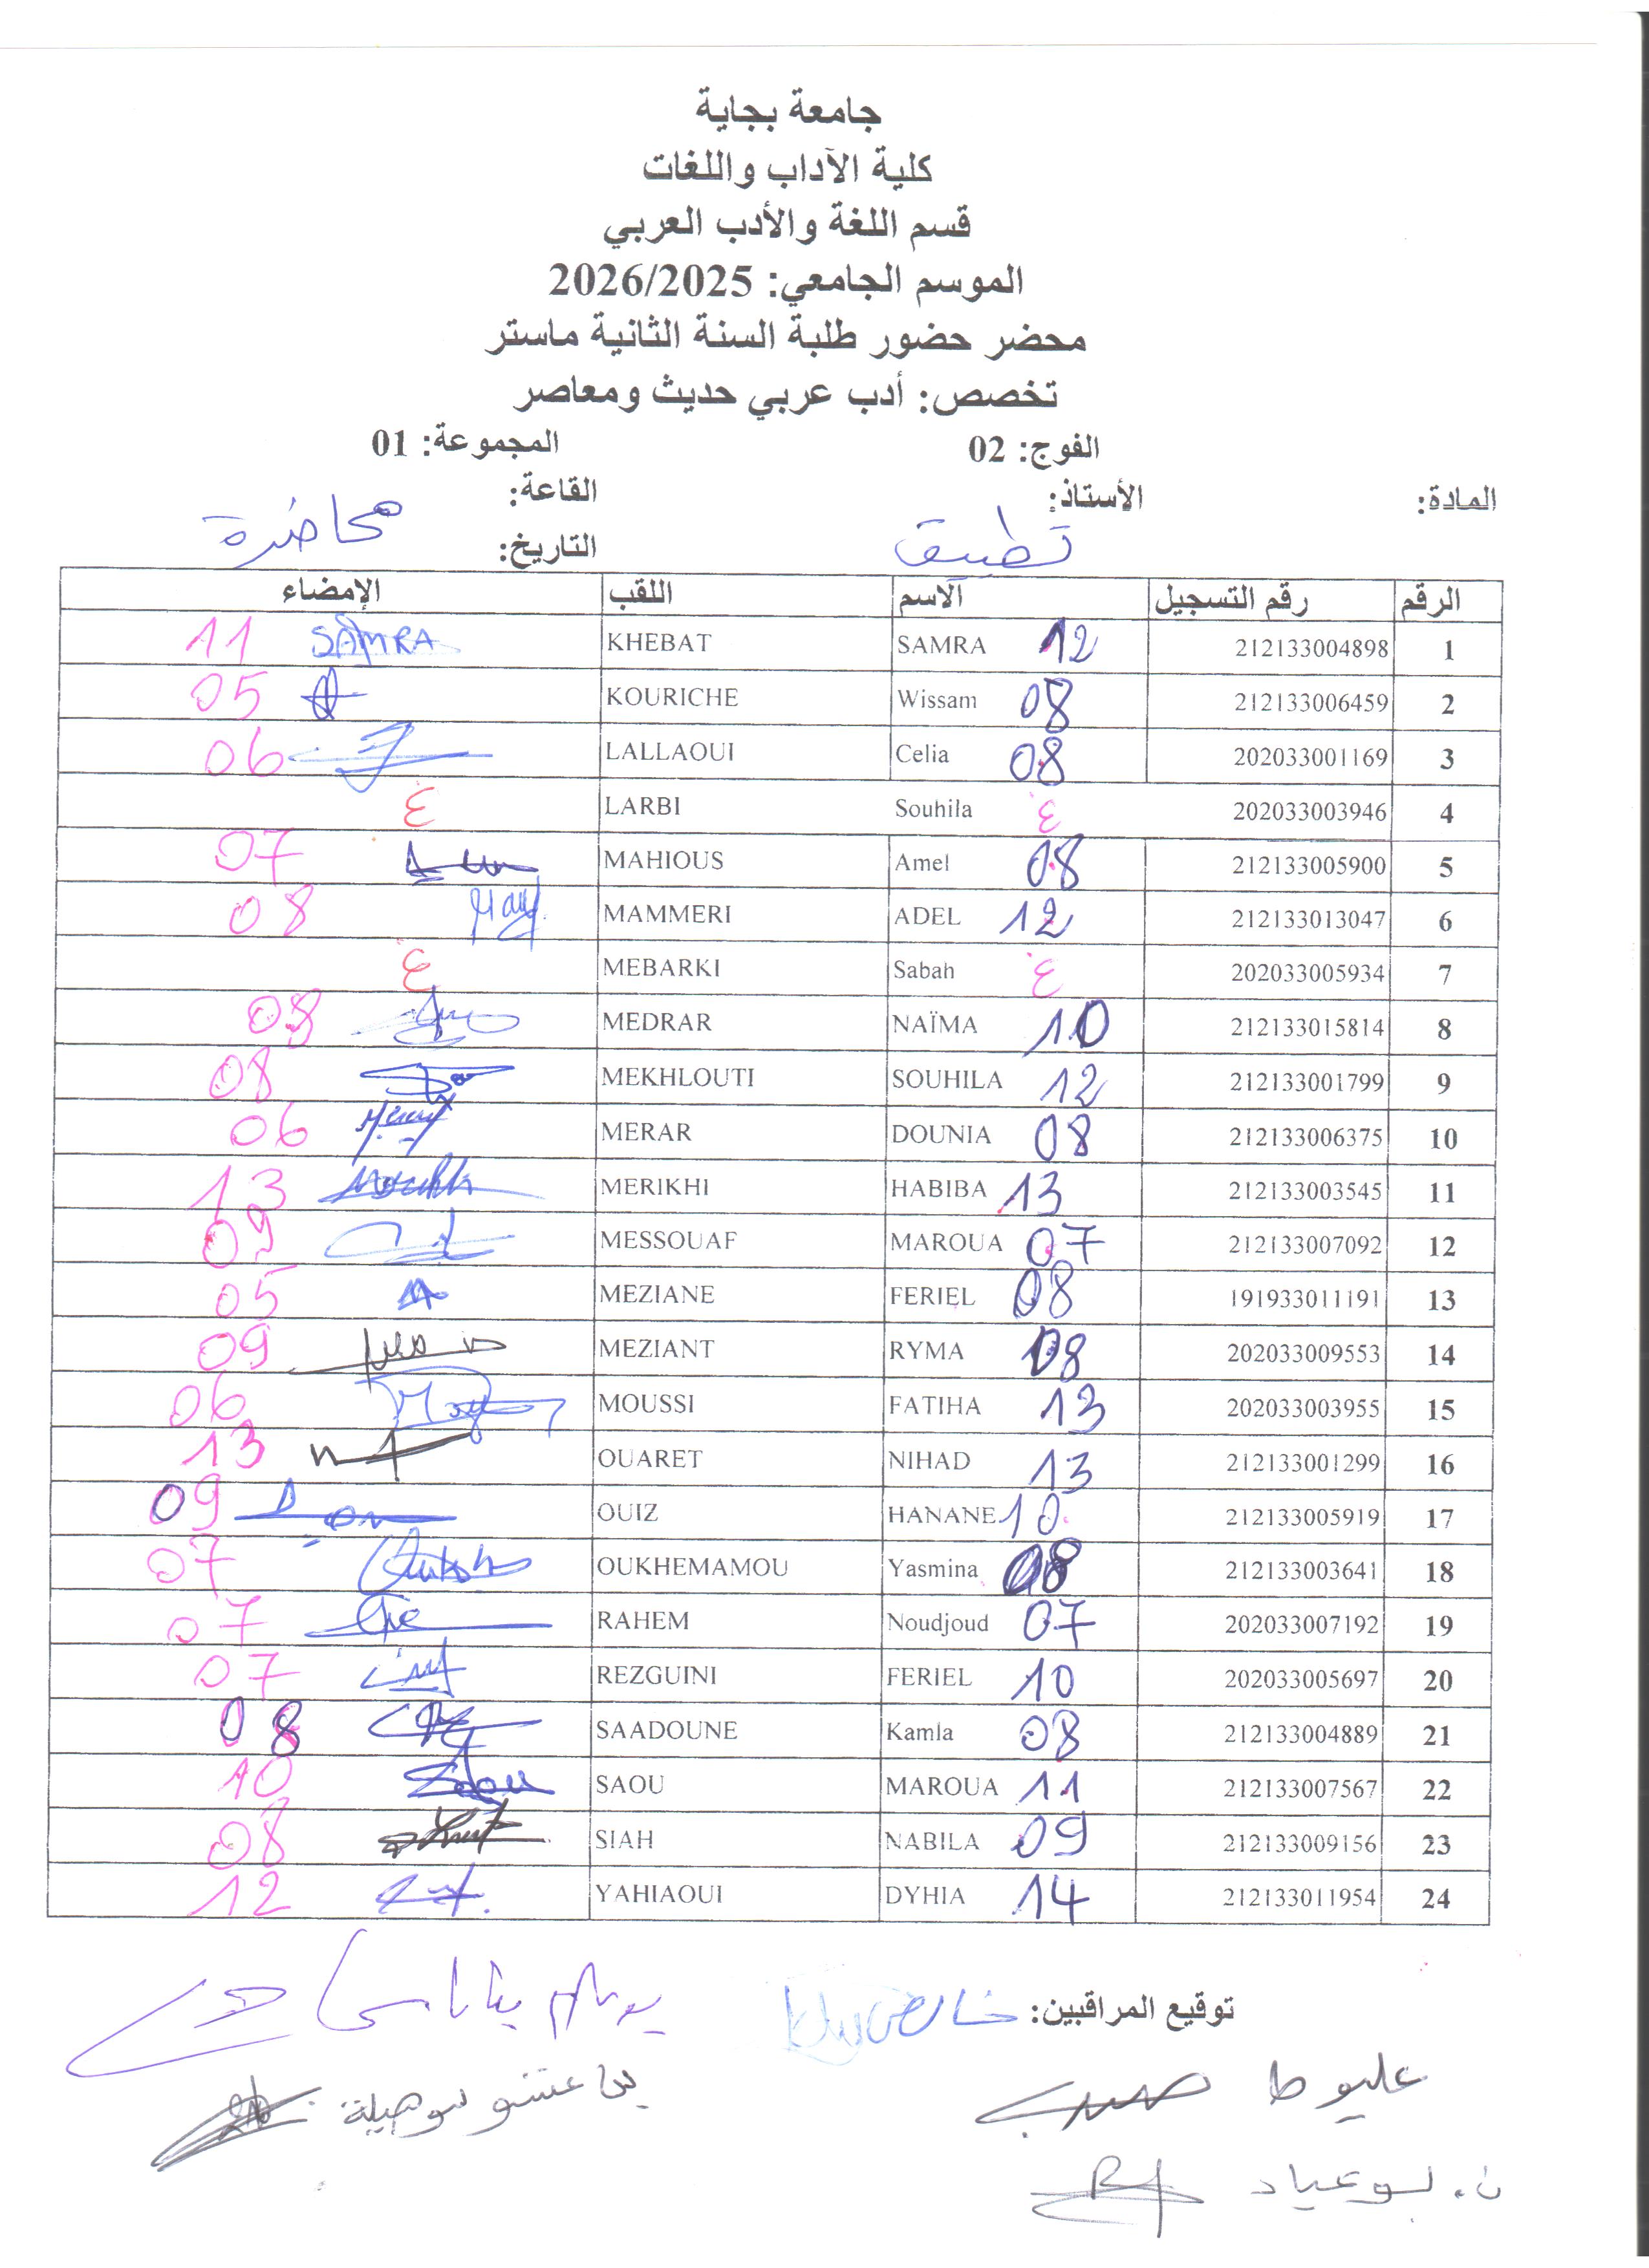 جامعة بجاية
كلية الآداب واللغات
قسم اللغة والأدب العربي
الموسم الجامعي: 2026/2025
محضر حضور طلبة السنة الثانية ماستر
تخصص: أدب عربي حديث ومعاصر
الفوج: 02 المجموعة: 01
المادة: الأستاذ: القاعة:
تطبيق محاضرة
التاريخ:
الرقم رقم التسجيل الاسم اللقب الإمضاء
1 212133004898 SAMRA 12 KHEBAT SAMRA 11
2 212133006459 Wissam 08 KOURICHE 05
3 202033001169 Celia 08 LALLAOUI 06
4 202033003946 Souhila غ LARBI غ
5 212133005900 Amel 08 MAHIOUS 07
6 212133013047 ADEL 12 MAMMERI 08
7 202033005934 Sabah غ MEBARKI غ
8 212133015814 NAÏMA 10 MEDRAR 08
9 212133001799 SOUHILA 12 MEKHLOUTI 08
10 212133006375 DOUNIA 08 MERAR 06
11 212133003545 HABIBA 13 MERIKHI 13
12 212133007092 MAROUA 07 MESSOUAF 09
13 191933011191 FERIEL 08 MEZIANE 05
14 202033009553 RYMA 08 MEZIANT 09
15 202033003955 FATIHA 13 MOUSSI 06
16 212133001299 NIHAD 13 OUARET 13
17 212133005919 HANANE 10 OUIZ 09
18 212133003641 Yasmina 08 OUKHEMAMOU 07
19 202033007192 Noudjoud 07 RAHEM 07
20 202033005697 FERIEL 10 REZGUINI 07
21 212133004889 Kamla 08 SAADOUNE 08
22 212133007567 MAROUA 11 SAOU 10
23 212133009156 NABILA 09 SIAH 08
24 212133011954 DYHIA 14 YAHIAOUI 12
توقيع المراقبين:
عليوط
سوهيلة
ن. بوعياد